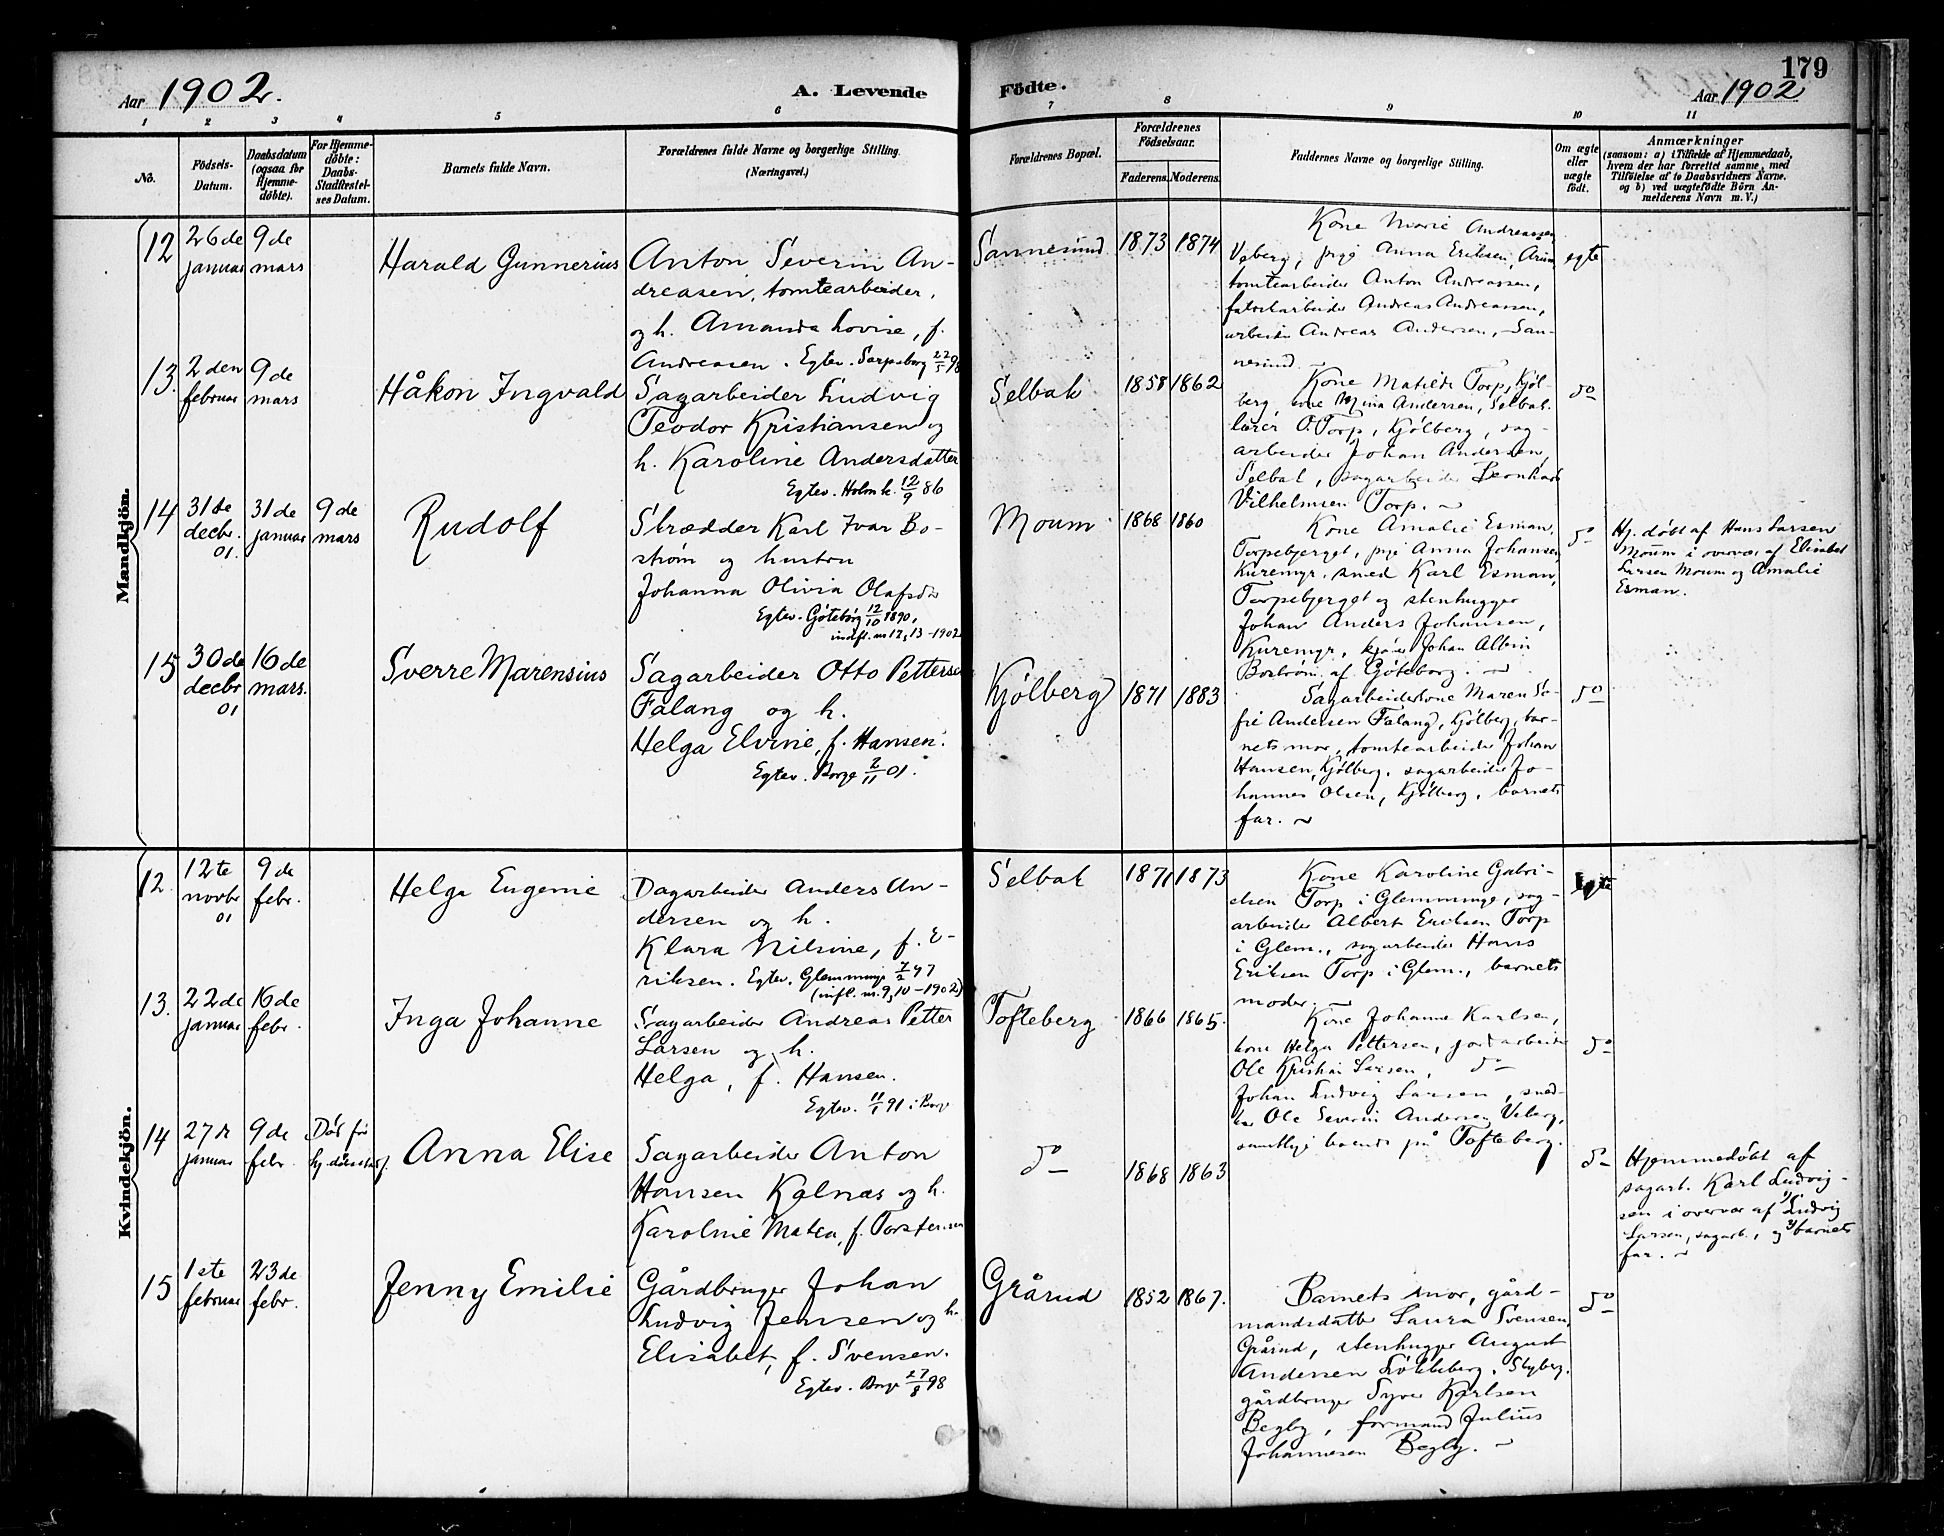 Aar 1902.
A. Levende
Födte.
179
Aar 1902
1 2 3 4 5 6 7 8 9 10 11
No.
Födsels-
Datum.
Daabsdatum
(ogsaa for
Hjemme-
döbte).
For Hjemme-
döbte:
Daabs-
Stadfæstel-
ses Datum.
Barnets fulde Navn.
Forældrenes fulde Navne og borgerlige Stilling.
(Næringsvei.)
Forældrenes Bopæl.
Forældrenes
Födselsaar.
Faderens. Moderens.
Faddernes Navne og borgerlige Stilling.
Om ægte
eller
uægte
födt.
Anmærkninger
(saasom: a) i Tilfælde af Hjemmedaab,
hvem der har forrettet samme, med
Tilföielse af to Daabsvidners Navne.
og b) ved uægtefödte Börn An-
melderens Navn m. V.)
Mandkjön.
12
26de
januar
9de
mars
Harald Gunnerius
Anton Severin An-
dreasen, tomtearbeider,
og h. Amanda Lovise, f.
Andreasen. Egtev. Sarpsborg 22/5 98
Sannesund
1873 1874
Kone Marie Andreassen
Veberg, pige Anna Eriksen,
tomtearbeider Anton Andreassen,
fabrikarbeider Andreas Andreassen,
arbeider Andreas Andersen, San-
nesund
egte
13.
2den
februar
9de
mars
Håkon Ingvald
Sagarbeider Ludvig
Teodor Kristiansen og
h. Karoline Andersdatter
Egtev. Holm k. 12/9 86
Selbak
1858 1862
Kone Matilde Torp, Kjöl-
berg, kone Mina Andersen, Selbak.
lærer O. Torp, Kjölberg, sag-
arbeider Johan Andersen,
Selbak, sagarbeider Leonhard
Vilhelmsen Torp. ~
do
14
31de
decbr.
01.
31de
januar
9de
mars
Rudolf
Skrædder Karl Ivar Bo-
strøm og hustru
Johanna Olivia Olafsdr
Egtev. Göteborg 12/10 1890,
indfl. nr 12, 13 - 1902
Moum
1868 1860
Kone Amalie Esman,
Torpebjerget, pige Anna Johansen
Kuremyr, smed Karl Esman,
Torpebjerget og stenhugger
Johan Anders Johansen,
Kuremyr, Johan Albin
Boström af Göteborg. ~
do
Hj. døbt af Hans Larsen
Moum i overvær af Elisabet
Larsen Moum og Amalie
Esman.
15
30de
decbr
01
16de
mars.
Sverre Marensius
Sagarbeider Otto Pettersen
Falang og h.
Helga Elvine, f. Hansen.
Egtev. Borge 2/11 01.
Kjölberg
1871 1883
Sagarbeiderkone Maren So-
fie Andersen Falang, Kjölberg, bar-
nets mor, tomtearbeider Johan
Hansen, Kjölberg, sagarbeider Jo-
hannes Olsen, Kjölberg, barnets
far. ~
do
Kvindekjön.
12.
12te
novbr
01
9de
febr.
Helga Eugenie
Dagarbeider Anders An-
dersen og h.
Klara Nilsine, f. E-
riksen. Egtev. Glemminge 7/2 97
(infl. nr. 9, 10 - 1902)
Selbak
1871 1873
Kone Karoline Gabri-
elsen Torp i Glemminge, sag-
arbeider Albert Eriksen Torp
i Glem., sagarbeider Hans
Eriksen Torp i Glem., barnets
moder. ~
Egte
13.
22de
januar
16de
febr.
Inga Johanne
Sagarbeider Andreas Petter
Larsen og h.
Helga, f. Hansen.
Egtev. 11/1 91 i Borge
Tofteberg
1866 1865.
Kone Johanne Karlsen,
kone Helga Pettersen, jordarbeider
Ole Kristian Larsen, do
Johan Ludvig Larsen, sned-
ker Ole Severin Andersen Veberg,
samtlige boende på Tofteberg.
do
14
27de
januar
9de
febr.
Död før
Anna Elise
Sagarbeider Anton
Hansen Kalnæs og h.
Karoline Matea, f. Torstensen
do
1868 1863
do
Hjemmedöbt af
sagarb. Karl Ludvig-
sen i overvær af 1) Ludvig
Larsen, sagarb., og 2) barnets
far. ~
15
1ste
februar
23de
febr.
Jenny Emilie
Gårdbruger Johan
Ludvig Jensen og h.
Elisabet, f. Svensen.
Egtev. Borge 27/8 98
Grårud
1852 1867.
Barnets mor, gård-
mandsdatter Laura Svensen,
Grårud, stenhugger August
Andersen
gårdbruger Syver Karlsen
Begby, formand Julius
Johannesen Begby. ~
do